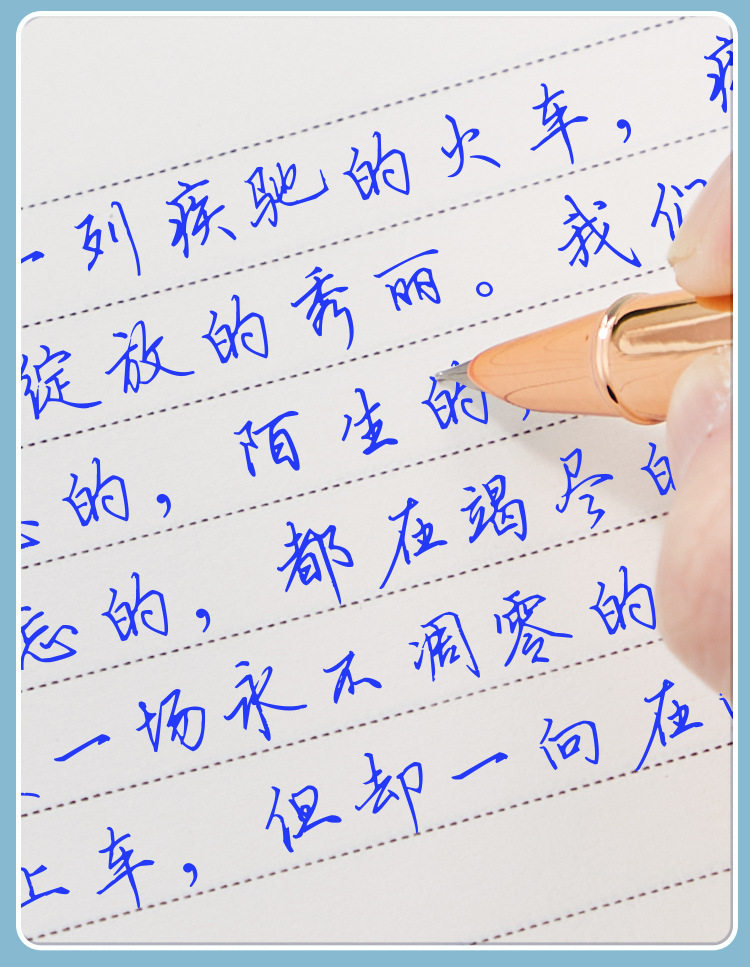 一列疾驰的火车，
绽放的秀丽。我们
的，陌生的，
忘的，都在竭尽的
一场永不凋零的
上车，但却一向在